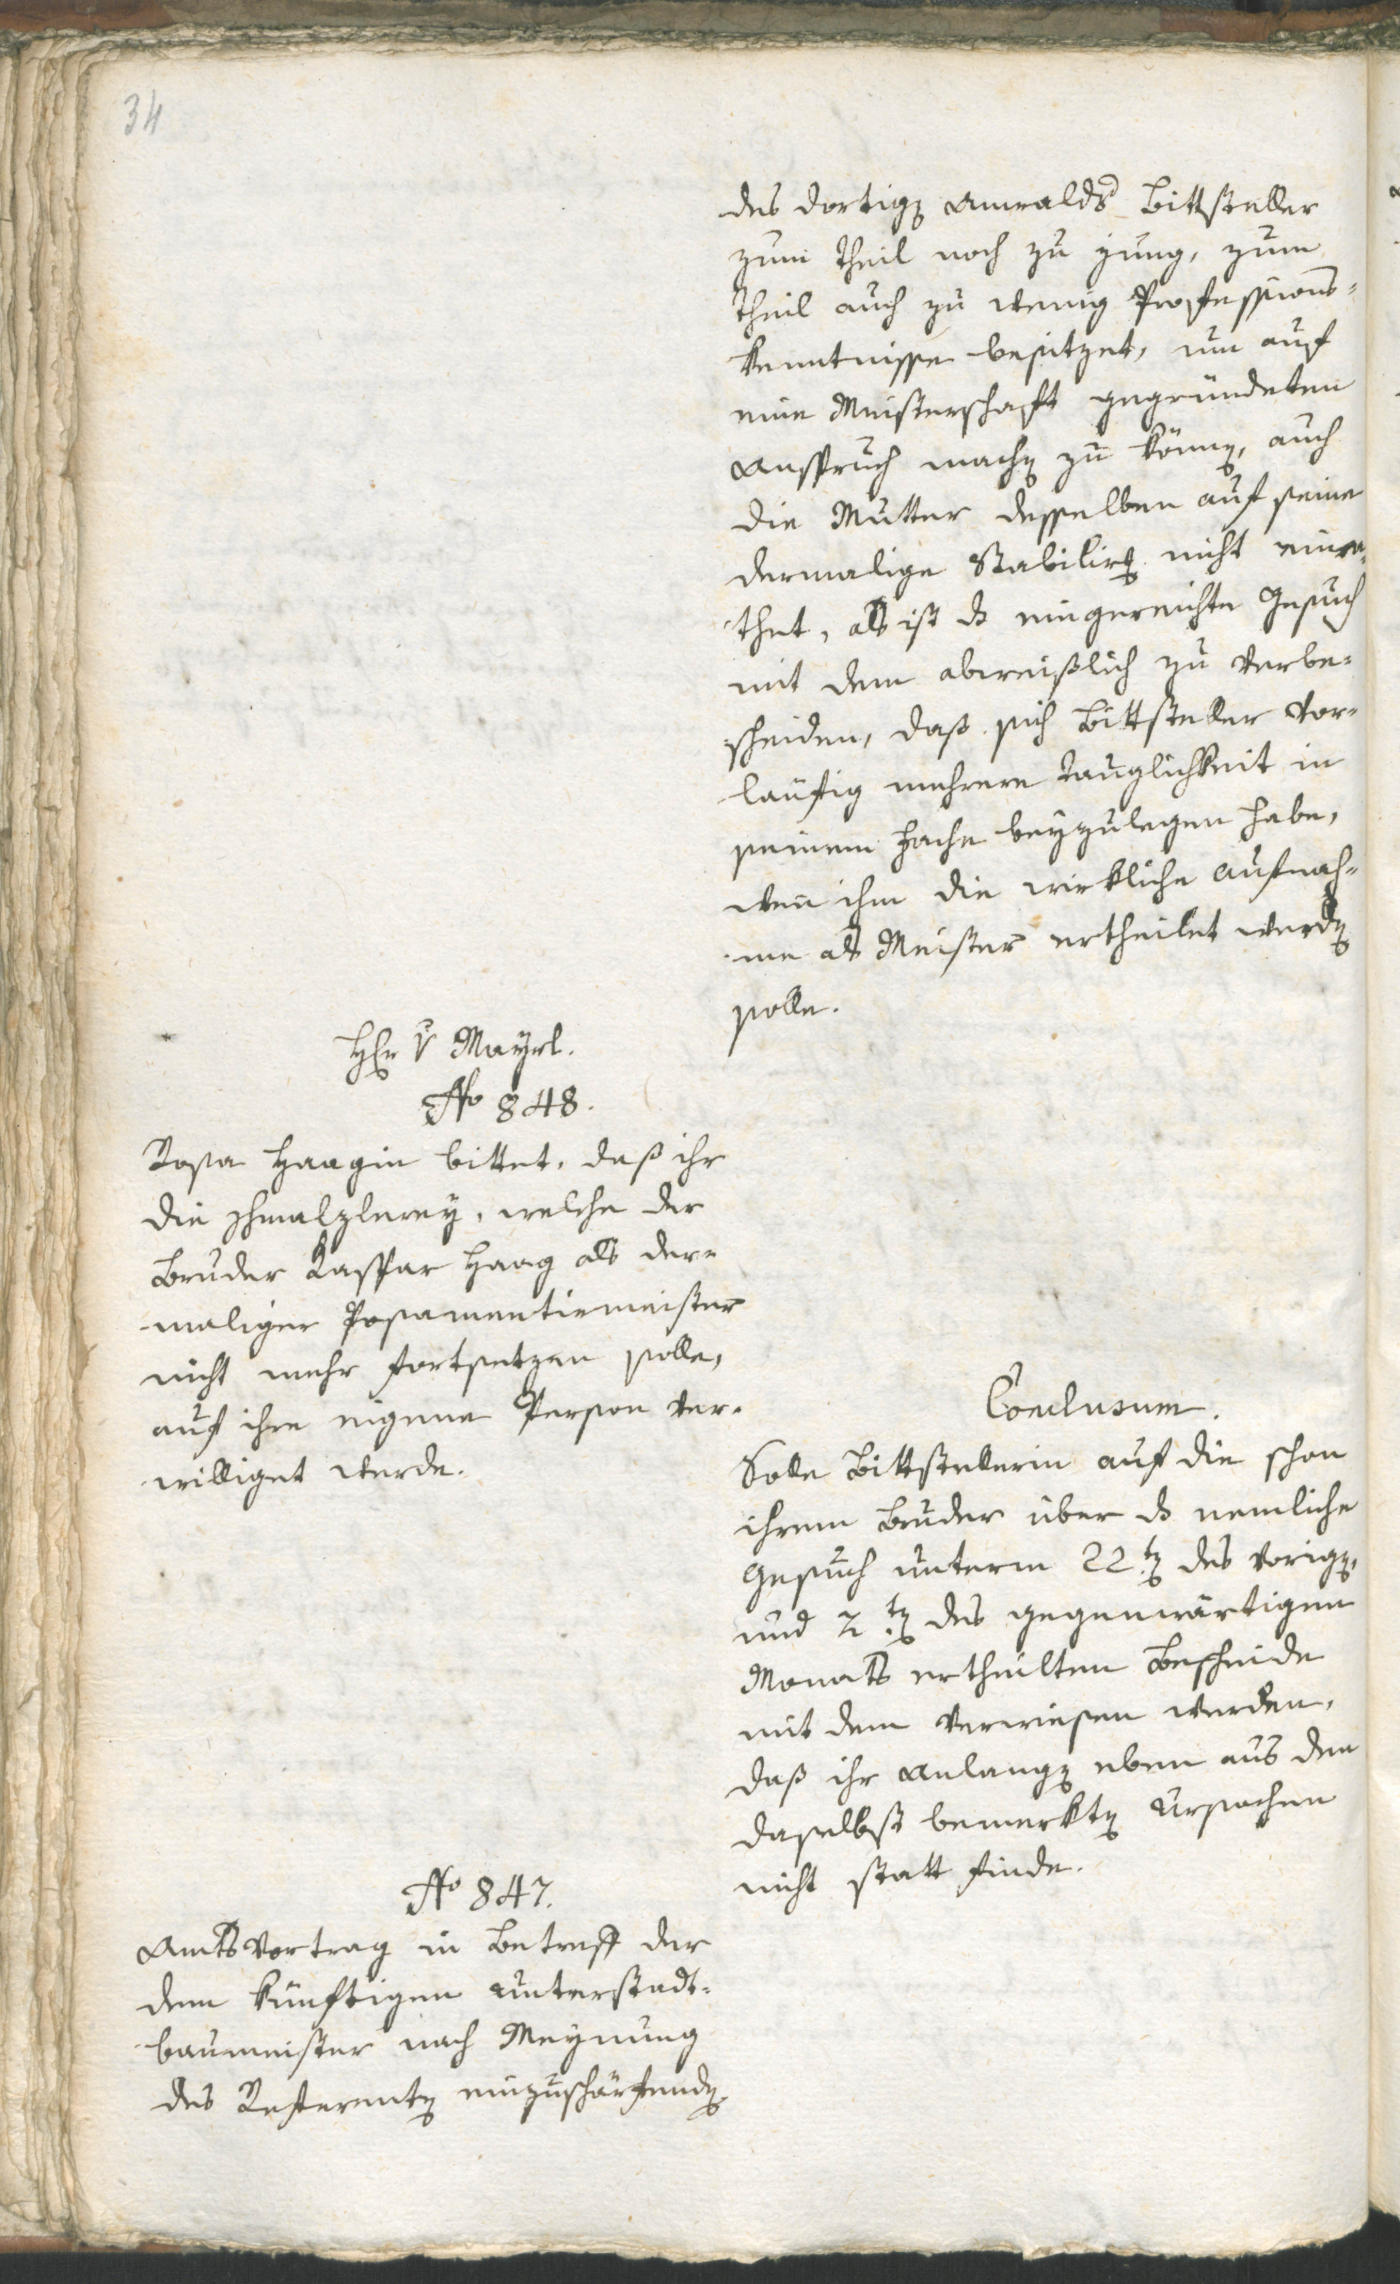 34
des dortigen Anwalds Bittsteller
zum Theil noch zu jung, zum
Theil auch zu wenig Professions-
kenntnisse besitzet, um auf
eine Meisterschaft gegründeten
Anspruch machen zu können, auch
die Mutter desselben auf seine
dermalige Stabilirung nicht einra-
thet, als ist das eingereichte Gesuch
mit dem abweislich zu verbe-
scheiden, daß sich Bittsteller vor-
läufig mehrere Tauglichkeit in
seinem Fache beyzulegen habe,
wenn ihm die wirkliche Aufnah-
me als Meister ertheilet werden
solle.
Hr v Mayrl.
No 848.
Rosa Haagin bittet, daß ihr
die Schmalzlerey, welche der
Bruder Kaspar Haag als der-
maliger Posamentiermeister
nicht mehr fortsetzen solle,
auf ihre eigene Person ver-
williget werde.
Conclusum.
Solle Bittstellerin auf die schon
ihrem Bruder über das nemliche
Gesuch unterm 22ten des vorigen,
und 2ten des gegenwärtigen
Monats ertheilten Bescheide
mit dem verwiesen werden,
daß ihr Anlangen eben aus den
daselbst bemerkten Ursachen
nicht statt finde.
No 847.
Amts Vortrag in Betreff der
dem künftigen Unterstadt-
baumeister nach Meynung
des Referenten einzuschärfenden